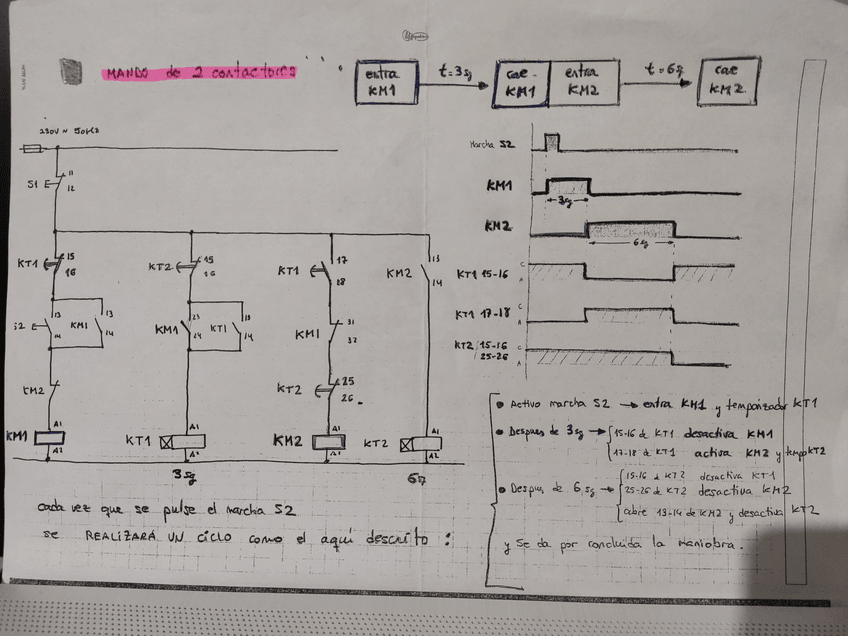 MANDO de 2 contactores
entra KM1
t=3sg
cae KM1
entra KM2
t=6sg
cae KM2
230V ~ 50Hz
Marcha S2
S1
11
12
KM1
3sg
KM2
6sg
KT1
15
16
KT2
15
16
KT1
17
18
KM2
13
14
KT1 15-16
C
A
KT1 17-18
C
A
KT2 15-16
25-26
C
A
13
14
KM1
13
14
KM1
23
14
KT1
13
14
KM1
31
32
KM2
KT2
25
26
KM1
A1
A2
KT1
A1
A2
KM2
A1
A2
KT2
A1
A2
3sg
6sg
• Activo marcha S2 → entra KM1 y temporizador KT1
• Despues de 3sg → 15-16 de KT1 desactiva KM1
17-18 de KT1 activa KM2 y tempo KT2
• Despues de 6sg → 15-16 de KT2 desactiva KT1
25-26 de KT2 desactiva KM2
abre 13-14 de KM2 y desactiva KT2
y se da por concluida la maniobra.
cada vez que se pulse el marcha S2
se REALIZARÁ UN CICLO como el aquí descrito: